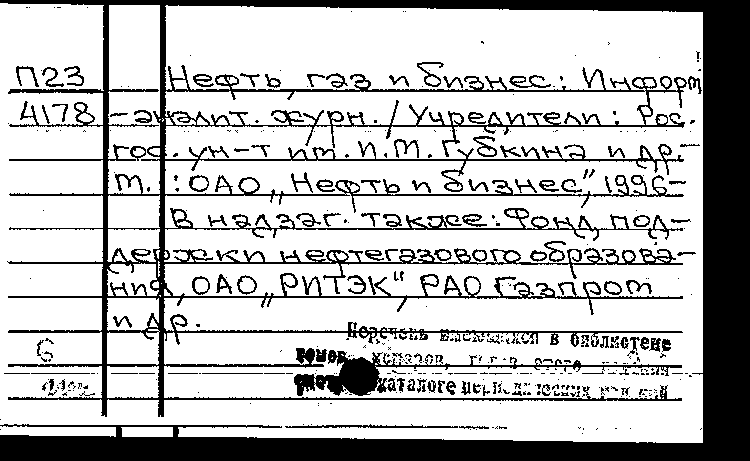 П23 Нефть, газ и бизнес: Информ
4178 -аналит. журн. / Учредители: Рос.
гос. ун-т им. И.М. Губкина и др.-
М.: ОАО „Нефть и бизнес“, 1996-
В надзаг. также: Фонд под-
держки нефтегазового образова-
ния, ОАО „РИТЭК“, РАО Газпром
и др.
Перечень имеющихся в библиотеке
6 томов, номеров, годов этого издания
каталоге периодических изданий